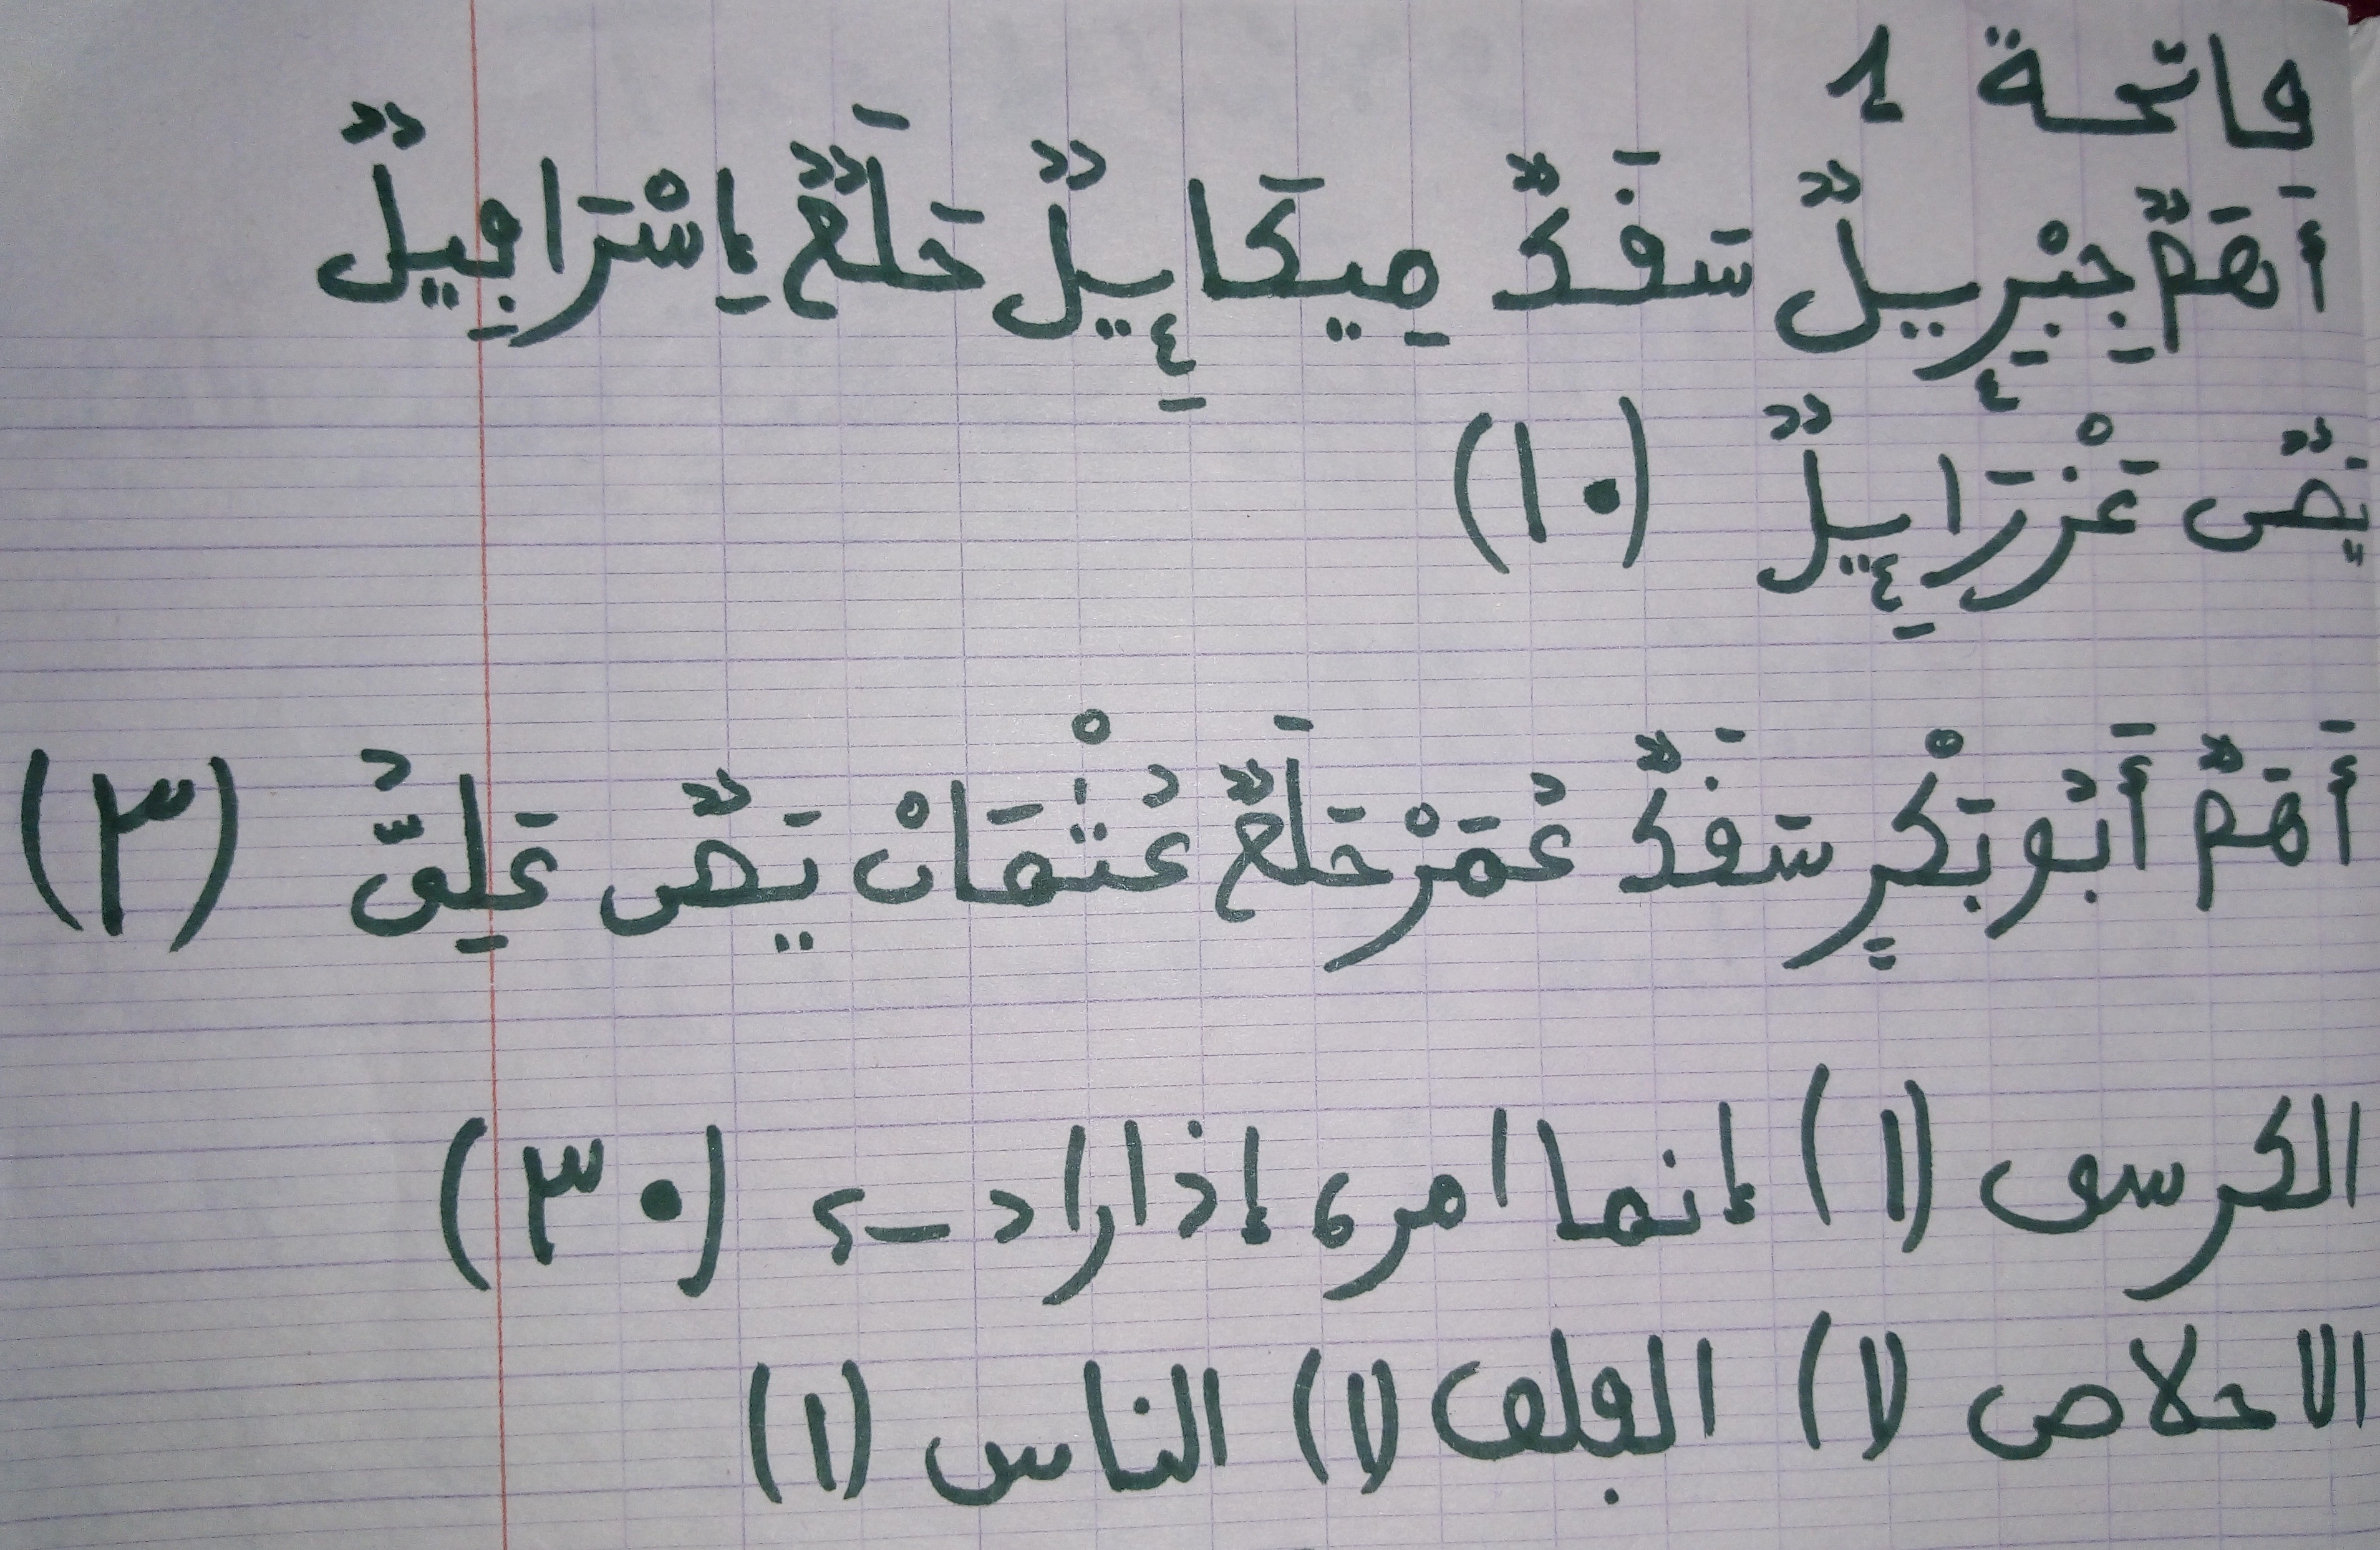 فاتحة ١
أَهَمٌّ جِبْرِيلٌ سَقَكٌّ مِيكَاىِٕيلٌ حَلَعٌّ إِسْرَافِيلٌ
يَصٌّ عَزْرَاىِٕيلٌ (١٠)
أَهَمٌّ أَبُو بَكْرٍ سَقَكٌّ عُمَرْ حَلَعٌّ عُثْمَانْ يَهٌّ عَلِيٌّ (٣)
الكرسى (١) إنما امره إذا اراد ـ (٣٠)
الاخلاص (١) الفلق (١) الناس (١)